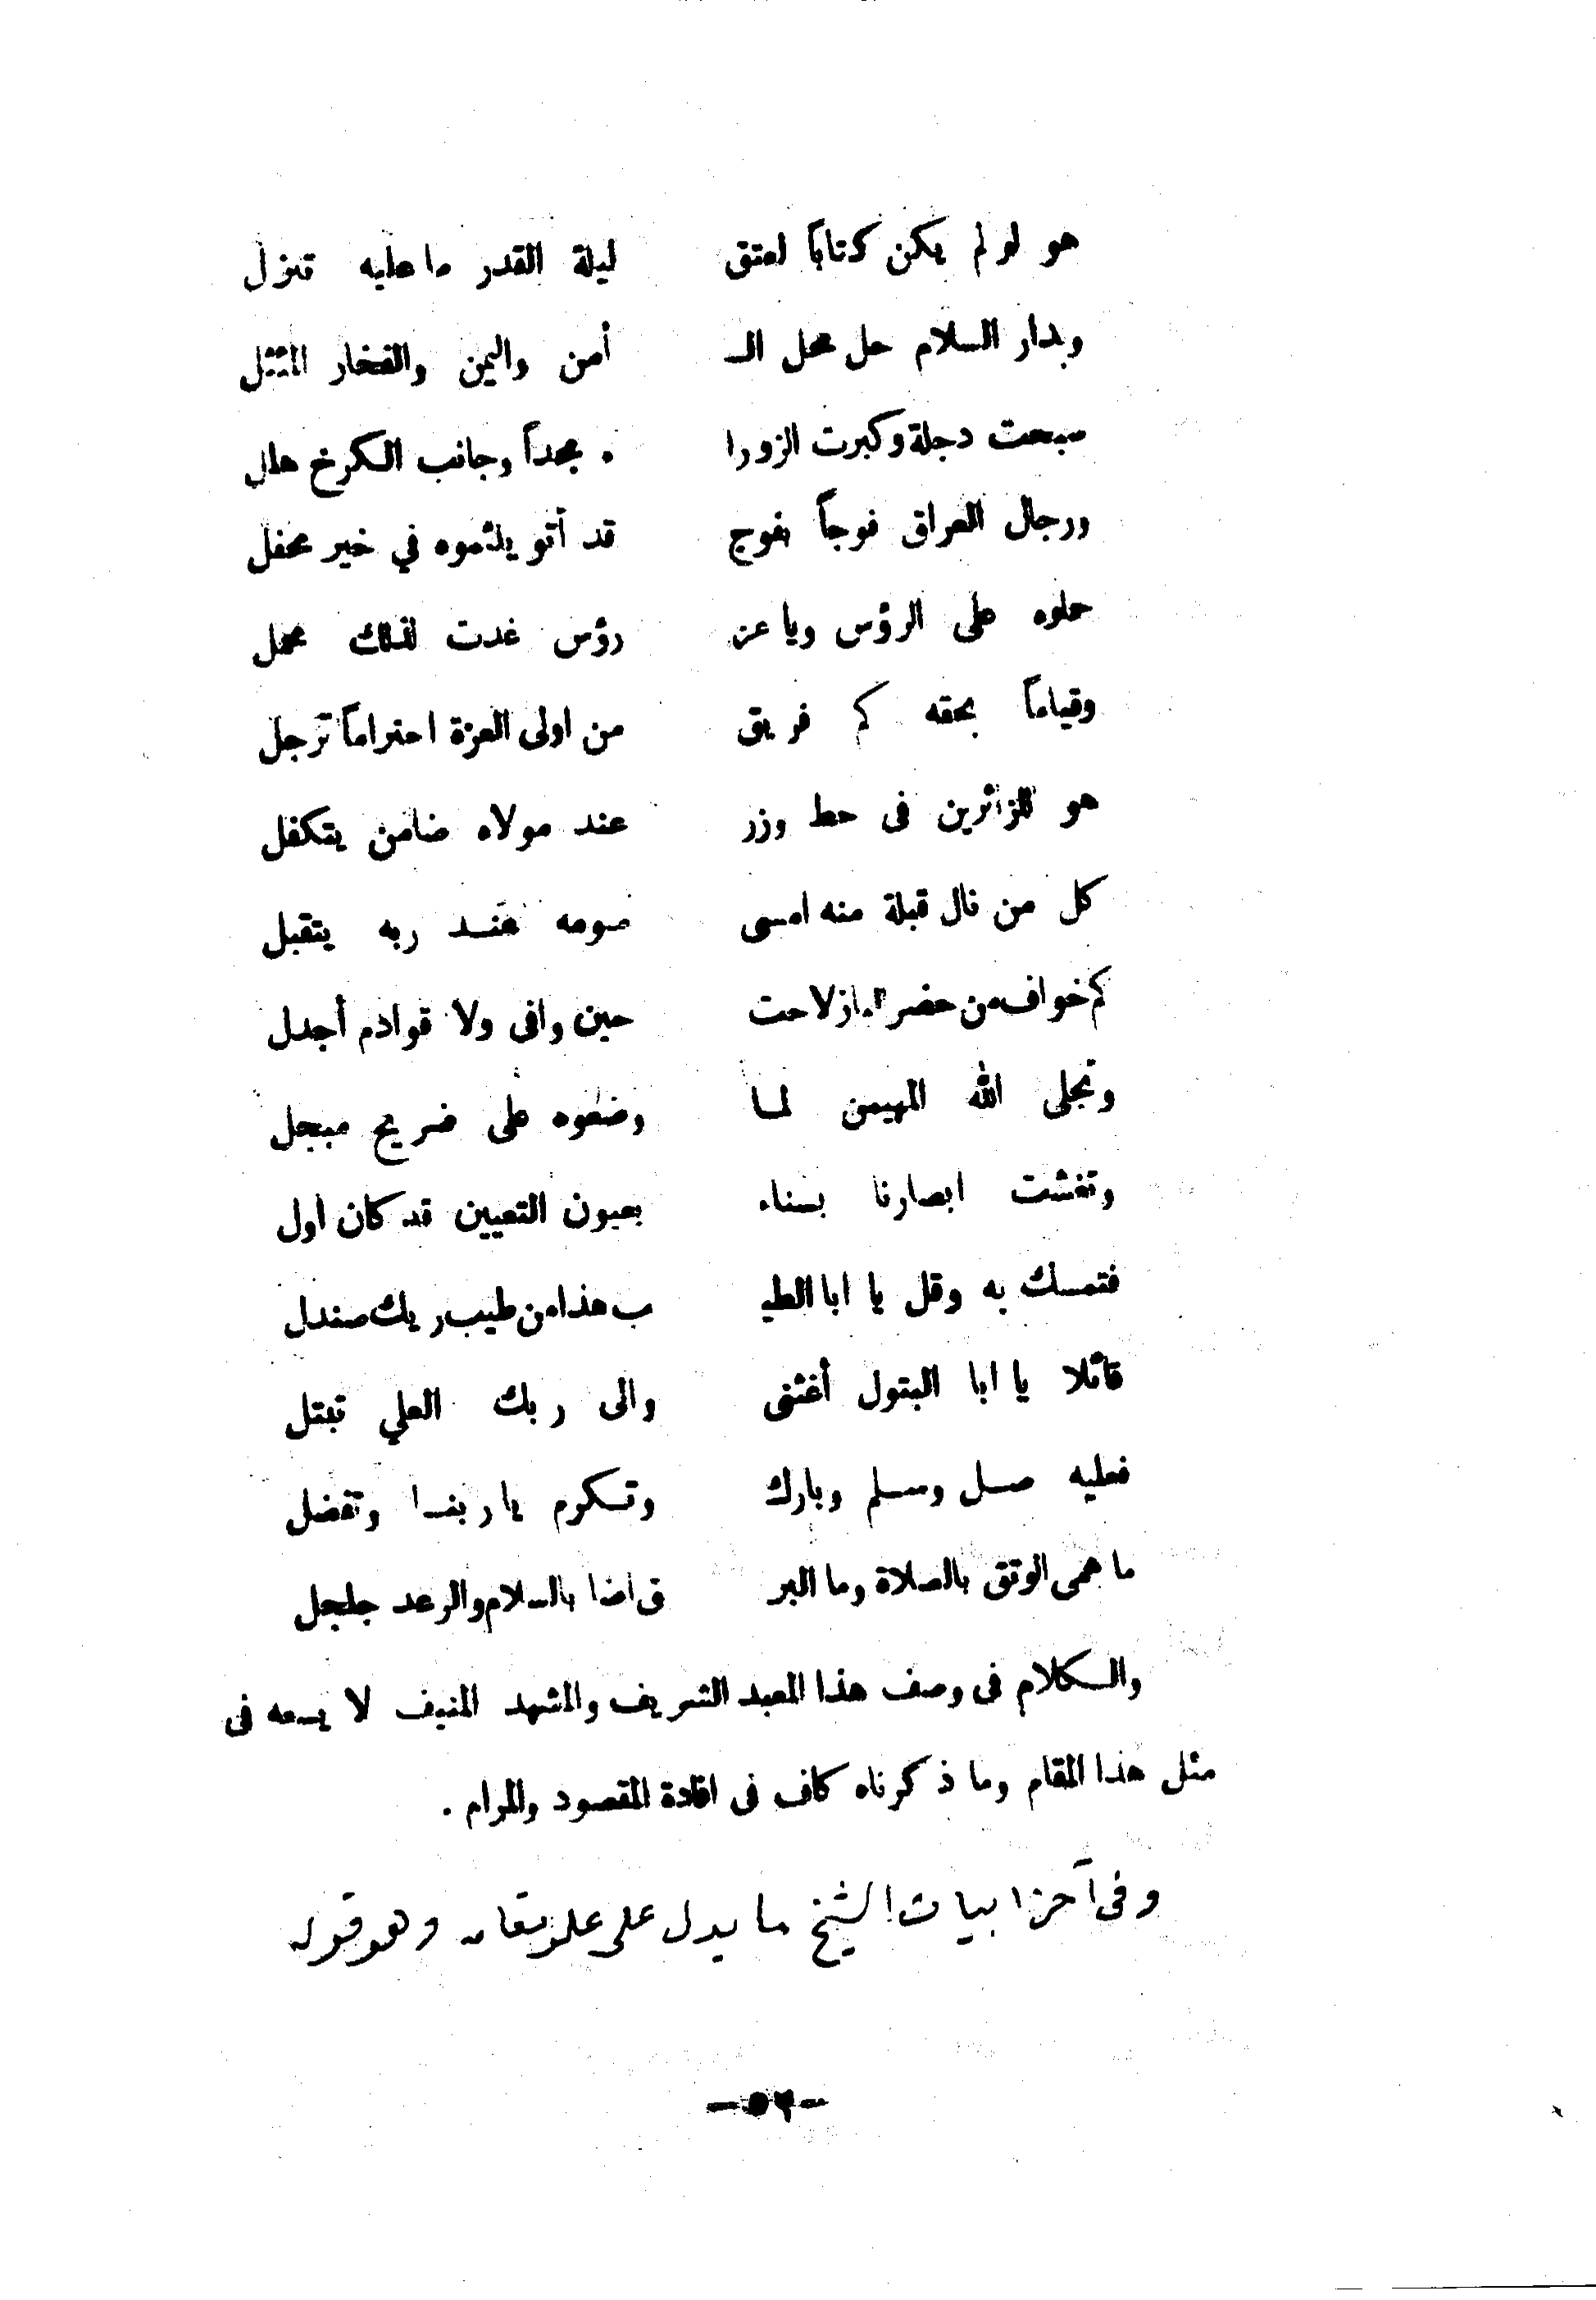 هو لو لم يكن كتابًا لعتق ليلة القدر ما عليه تنزل
وبدار السلام حل محل الـ أمن واليمن والفخار المثثل
سبحت دجلة وكبرت الزورا ء مجداً وجانب الكرخ هلل
ورجال العراق فوجاً بفوج قد أتو يلثموه في خير محفل
حملوه على الرؤس ويا عز رؤس غدت لذلك محمل
وقياماً بحقه كم فريق من اولى العزة احتراماً ترجل
هو للزائرين فى حط وزر عند مولاه ضامن يتكفل
كل من نال قبلة منه امسى صومه عند ربه يتقبل
كم خواف من حضر لاحت حين وافى ولا قوادم أجدل
وتجلى الله المهيمن لما وضعوه على ضريح مبجل
وتغشت ابصارنا بسناء بعيون التعيين قد كان أول
فتمسك به وقل يا ابا الطيـ ب هذا من طيب ريك صندل
قائلا يا ابا البتول أغثنى والى ربك العلي تبتل
فعليه صل وسلم وبارك وتكرم يا ربنا وتفضل
ما همى الودق بالصلاة وما البر ق اضا بالسلام والرعد جلجل
والكلام فى وصف هذا المعبد الشريف والمشهد المنيف لا يسعه فى
مثل هذا المقام وما ذكرناه كاف فى افادة المقصود والمرام .
وفى آخر ابيات الشيخ ما يدل على علو مقامه وهو قوله
-٥٢-